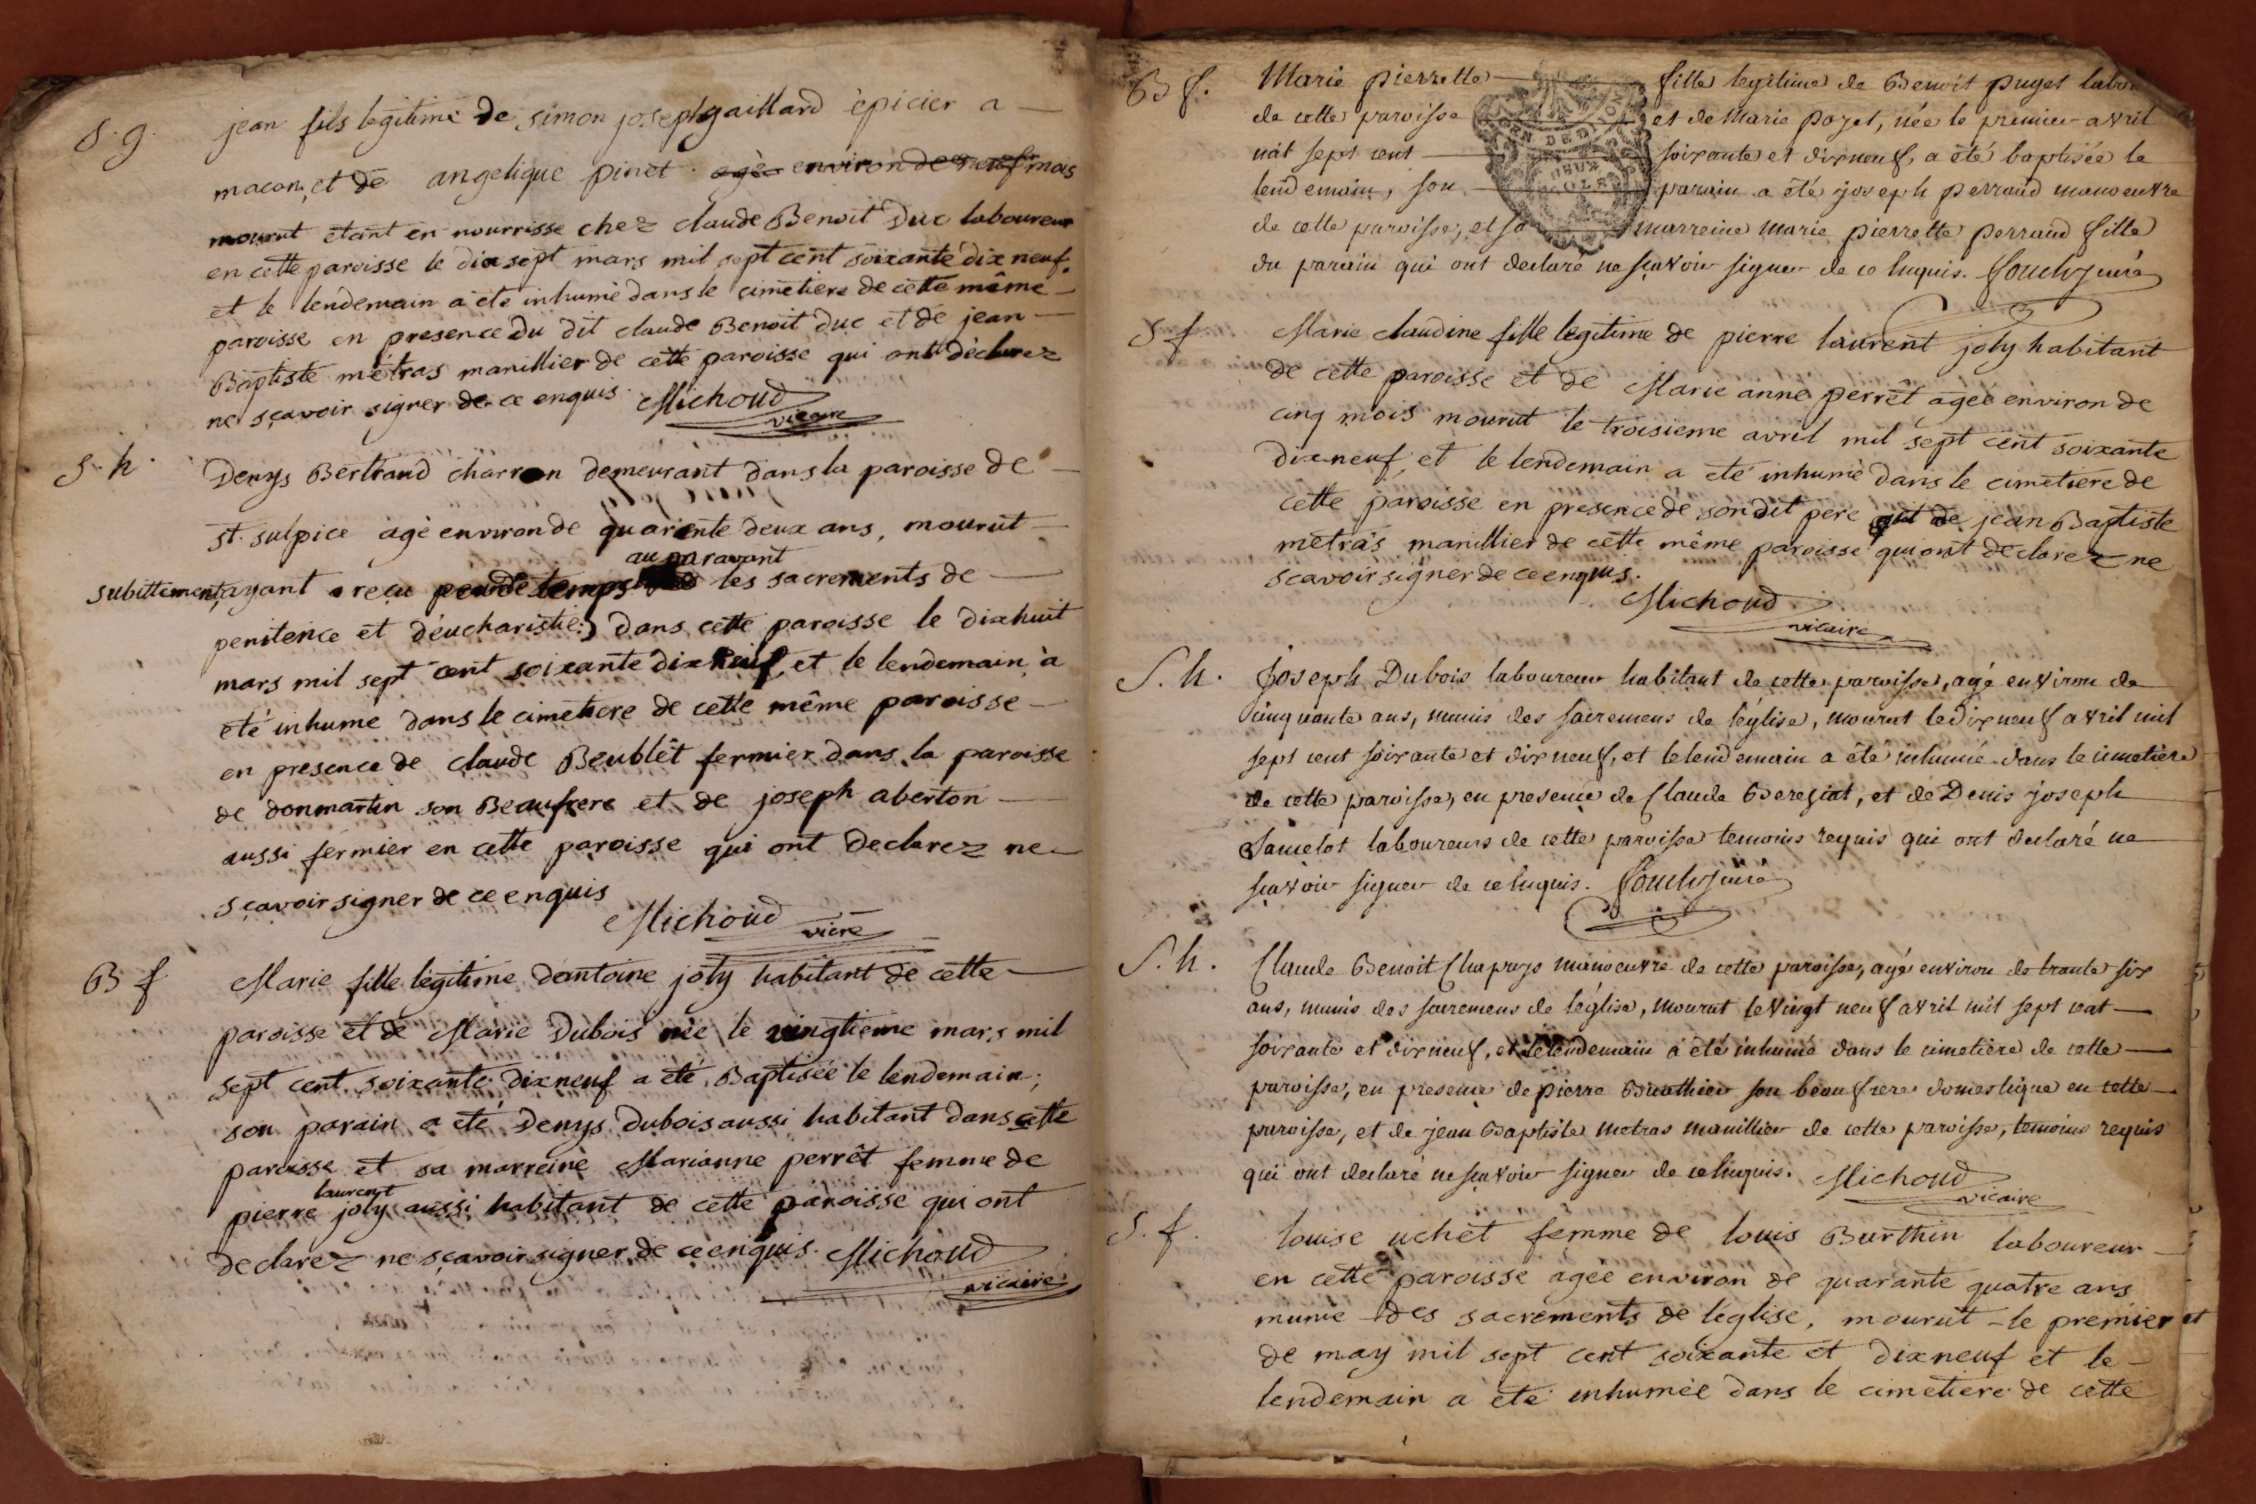 S. g. jean fils legitime de simon joseph gaillard epicier a
macon, et de angelique pinet. agè environ de neuf mois
mourut etant en nourrisse chez claude Benoit Duc laboureur
en cette paroisse le dix sept mars mil sept cent soixante dix neuf.
et le lendemain a été inhumé dans le cimetiere de cette même
paroisse en presence du dit claude Benoit Duc et de jean
Baptiste métras manillier de cette paroisse qui ont déclarez
ne sçavoir signer de ce enquis. Michoud
vicaire
S. h. Denys Bertrand charron demeurant dans la paroisse de
st. sulpice agé environ de quarente deux ans, mourut
au paravant
subittement, ayant reçu peu de temps les sacrements de
penitence et d'eucharistie dans cette paroisse le dix huit
mars mil sept cent soixante dix neuf, et le lendemain a
eté inhumé dans le cimetiere de cette même paroisse
en presence de claude Beublêt fermier dans la paroisse
de donmartin son Beaufrere et de joseph aberton
aussi fermier en cette paroisse qui ont declarez ne
sçavoir signer de ce enquis
Michoud vicre
B f Marie fille legitime d'antoine joly habitant de cette
paroisse et de Marie Dubois née le vingtieme mars mil
sept cent soixante dixneuf a été Baptisée le lendemain;
son parain a eté Denys Dubois aussi habitant dans cette
paroisse et sa marreine Marianne perrêt femme de
laurent
pierre joly aussi habitant de cette paroisse qui ont
declarez ne sçavoir signer de ce enquis. Michoud
vicaire
B f. Marie pierrette fille legitime de Benoit puget
de cette paroisse et de Marie poget, née le premier avril
mil sept cent soixante et dixneuf, a été baptisée le
lendemain, son parain a été joseph perraud manoeuvre
de cette paroisse, et sa marreine marie pierrette perraud fille
du parain qui ont declaré ne sçavoir signer de ce enquis.
S f Marie claudine fille legitime de pierre laurent joly habitant
de cette paroisse et de Marie anne perrêt agée environ de
cinq mois mourut le troisieme avril mil sept cent soixante
dixneuf, et le lendemain a eté inhumé dans le cimetiere de
cette paroisse en presence de son dit pere et de jean Baptiste
metras manillier de cette même paroisse qui ont declarez ne
scavoir signer de ce enquis.
Michoud
vicaire
S. h. Joseph Dubois laboureur habitant de cette paroisse, agé environ de
cinquante ans, munis des sacremens de l'église, mourut le dix neuf avril mil
sept cent soixante et dix neuf, et le lendemain a été inhumé dans le cimetiere
de cette paroisse, en presence de Claude Bereziat, et de Denis joseph
Janelot laboureurs de cette paroisse temoins requis qui ont declaré ne
sçavoir signer de ce enquis.
S. h. Claude Benoit Chapuys manoeuvre de cette paroisse, agé environ de trante six
ans, munis des sacremens de l'église, mourut le vingt neuf avril mil sept cent
soixante et dixneuf, et le lendemain a été inhumé dans le cimetiere de cette
paroisse, en presence de pierre son beau frere domestique en cette
paroisse, et de jean Baptiste metras manillier de cette paroisse, temoins requis
qui ont declaré ne sçavoir signer de ce enquis. Michoud
vicaire
S. f. louise uchet femme de louis Burthin laboureur
en cette paroisse agée environ de quarante quatre ans
munie des sacrements de l'église, mourut le premier
de may mil sept cent soixante et dixneuf et le
lendemain a eté inhumée dans le cimetiere de cette